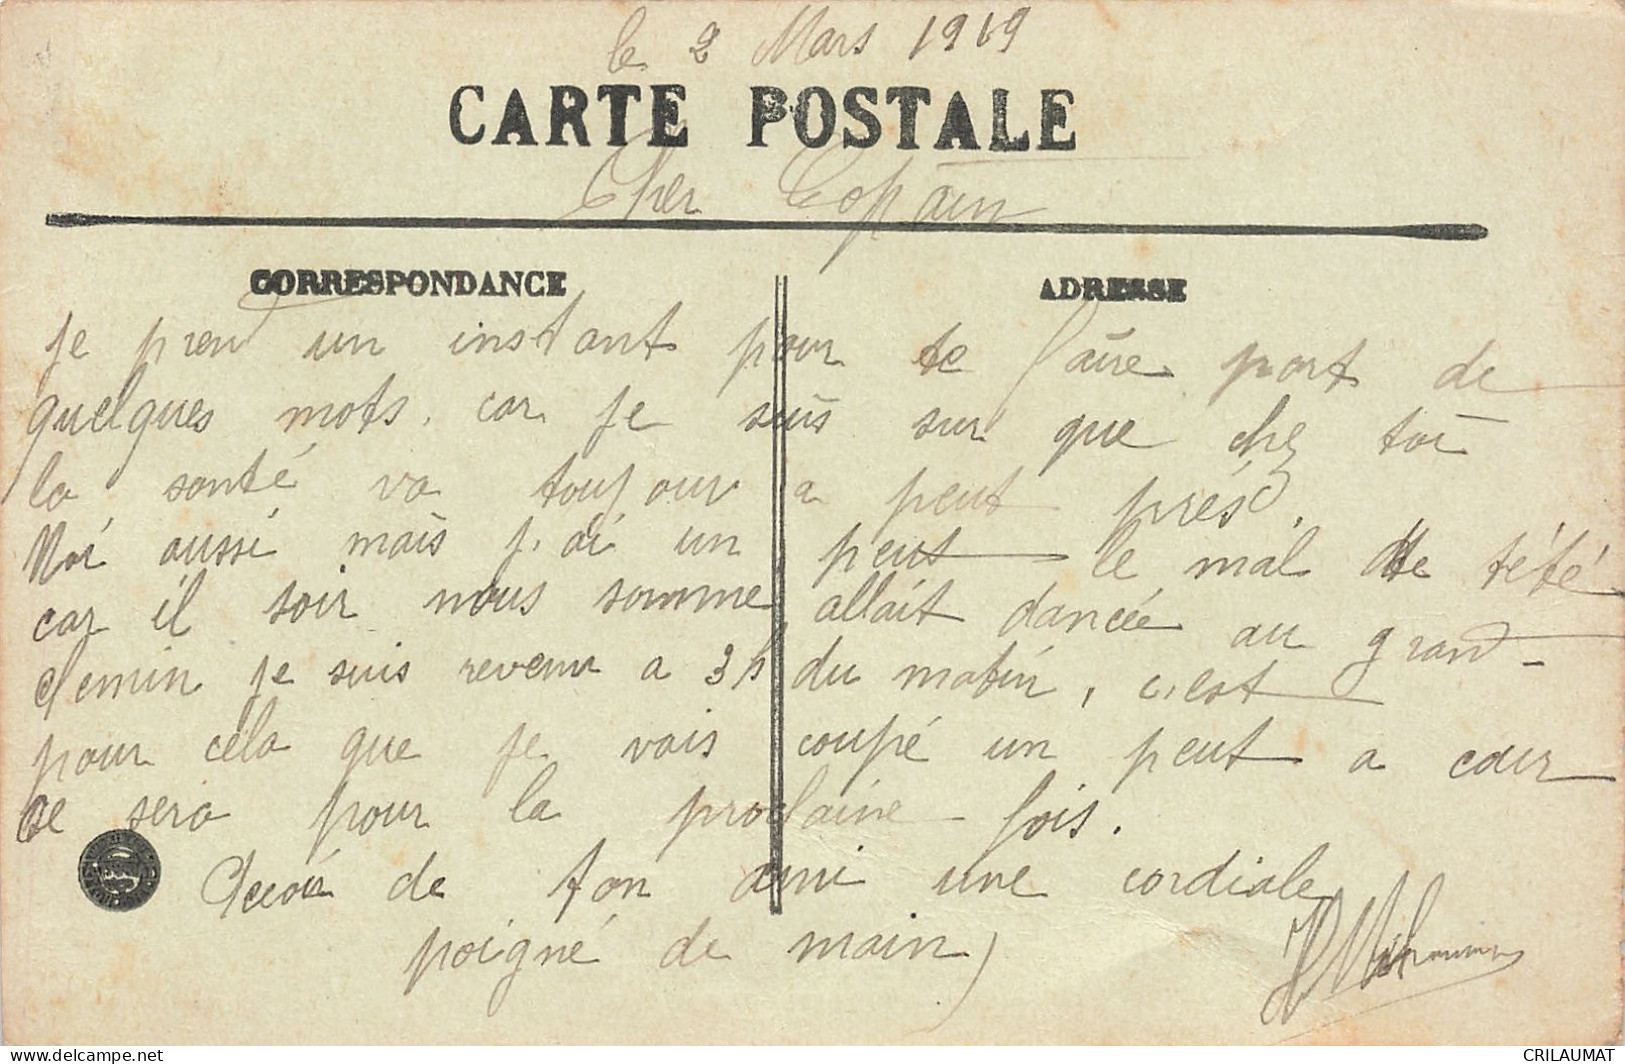 le 2 Mars 1919
CARTE POSTALE
Cher Copain
CORRESPONDANCE
ADRESSE
je prend un instant pour te faire part de
quelques mots. car je suis sur que chez toi
la santé va toujour a peut prés.
Moi aussi mais j'ai un peut le mal de tété
car il soir nous somme allait dancée au grand
chemin je suis revenu a 3h du matin, c'est
pour cela que je vais coupé un peut a cour
ce sera pour la prochaine fois.
Reçois de ton ami une cordiale
poigné de main
delcampe.net
CRILAUMAT